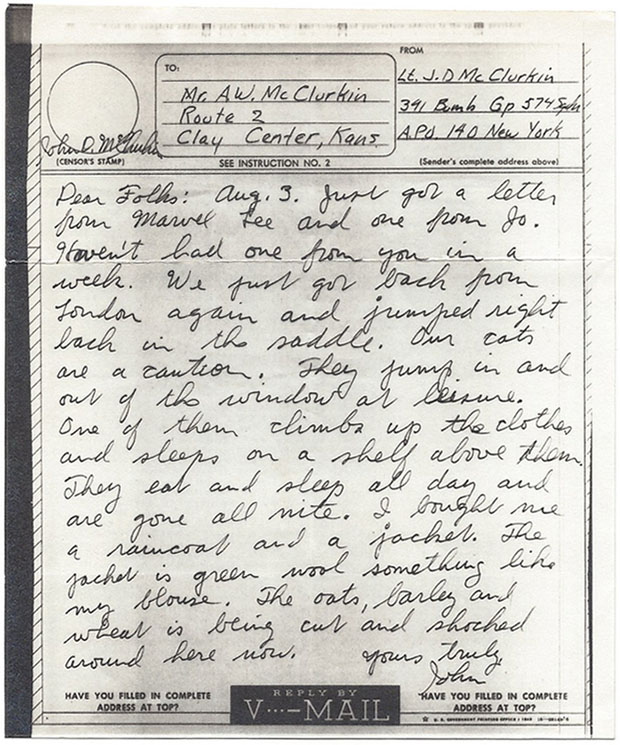 FROM
TO:
Mr. A.W. McClurkin
Route 2
Clay Center, Kans.
Lt. J. D McClurkin
391 Bomb Gp 574 Sqdn
A.P.O. 140 New York
John D. McClurkin
(CENSOR'S STAMP)
SEE INSTRUCTION NO. 2
(Sender's complete address above)
Dear Folks: Aug. 3. Just got a letter
from Marvel Lee and one from Jo.
Haven't had one from you in a
week. We just got back from
London again and jumped right
back in the saddle. Our cats
are a caution. They jump in and
out of the window at leisure.
One of them climbs up the clothes
and sleeps on a shelf above them.
They eat and sleep all day and
are gone all nite. I bought me
a raincoat and a jacket. The
jacket is green wool something like
my blouse. The oats, barley and
wheat is being cut and shocked
around here now. yours truly,
John
HAVE YOU FILLED IN COMPLETE
ADDRESS AT TOP?
REPLY BY
V···—MAIL
HAVE YOU FILLED IN COMPLETE
ADDRESS AT TOP?
U. S. GOVERNMENT PRINTING OFFICE